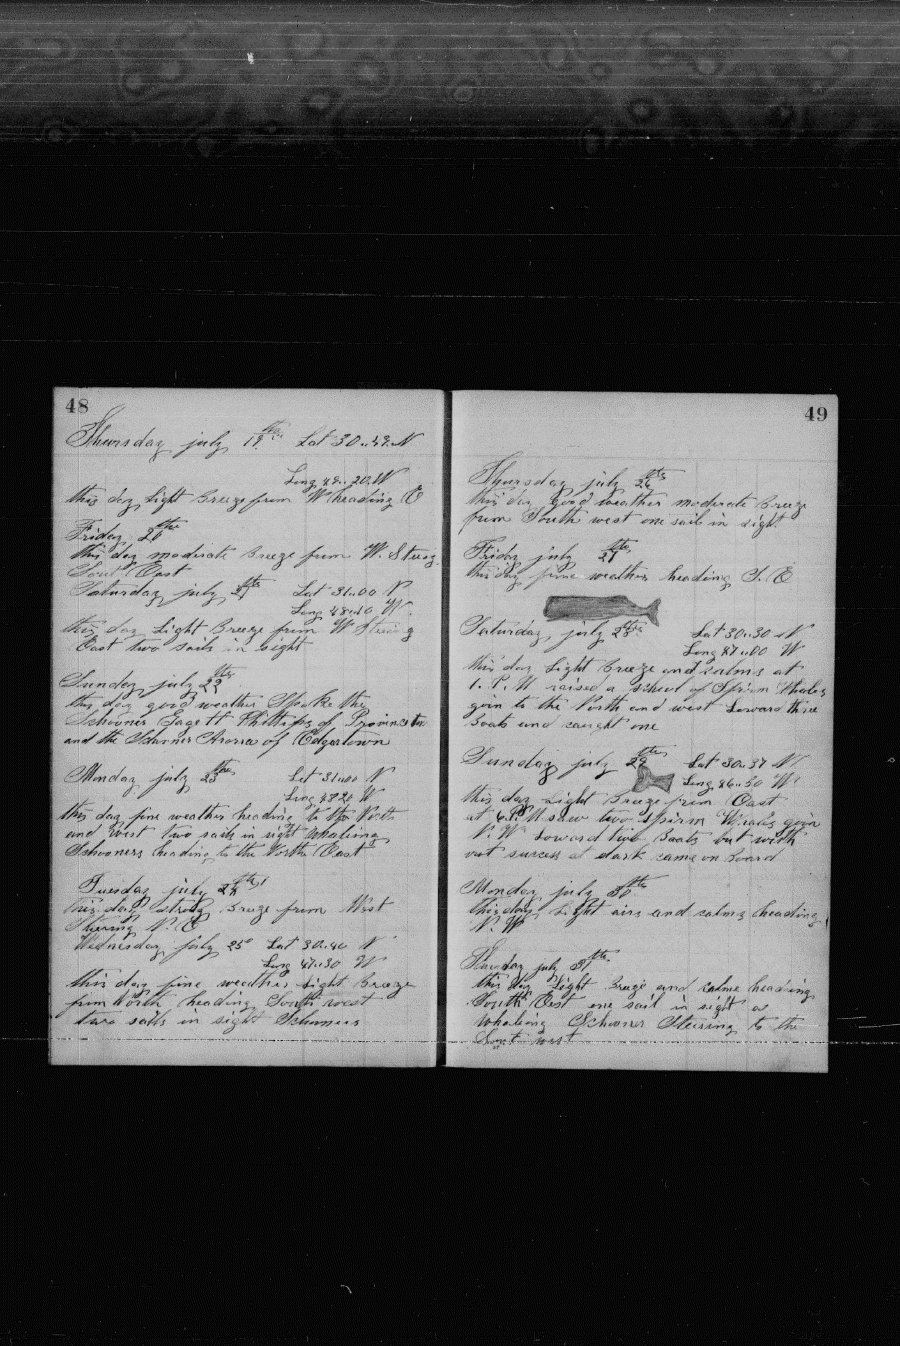 48
Thursday july 19th Lat 30..49. N
Long 49..20. W
this day Light Breeze from W heading E
Friday 20th
this day moderate Breeze from W. Steerg
Sout East
Saturday july 21th Lat 31..00 N
Long 48..10 W
this day Light Breeze from W Steering
East two sails in sight
Sunday july 22th
this day good weather Spoke the
Schooner Gage H Phillips of Provincetn
and the Schooner of Edgartown
Monday july 23th Lat 31..00 N
Long 48 20 W
this day fine weather heading to the North
and West two sails in sight whaleing
Schooners heading to the North East
Tuesday july 24th
this day strong Breeze from West
Stering N. E
Wednesday july 25 Lat 30..40 N
Long 47..30 W
this day fine weather Light Breeze
from North heading South west
two sails in sight Schooners
49
Thursday july 26th
this day good weather moderate Breeze
from South west one sail in sight
Friday july 27th
this day fine weather heading S. E
Saturday july 28th Lat 30..30 N
Long 47..00 W
this day Light Breeze and calms at
1. P. M raised a school of Spirm Whales
goin to the North and west Loward three
Boats and caught one
Sunday july 29th Lat 30..37 N
Long 46..50 W
this day Light Breeze from East
at 6. P. M saw two Spirm Whales goin
N. W Loward two Boats but with
out success at dark came on Board
Monday july 30th
this day Light airs and calms heading
N. W
Tuesday july 31th
this day Light Breeze and calms heading
South East one sail in sight a
Whaleing Schooner Steering to the
Sout west